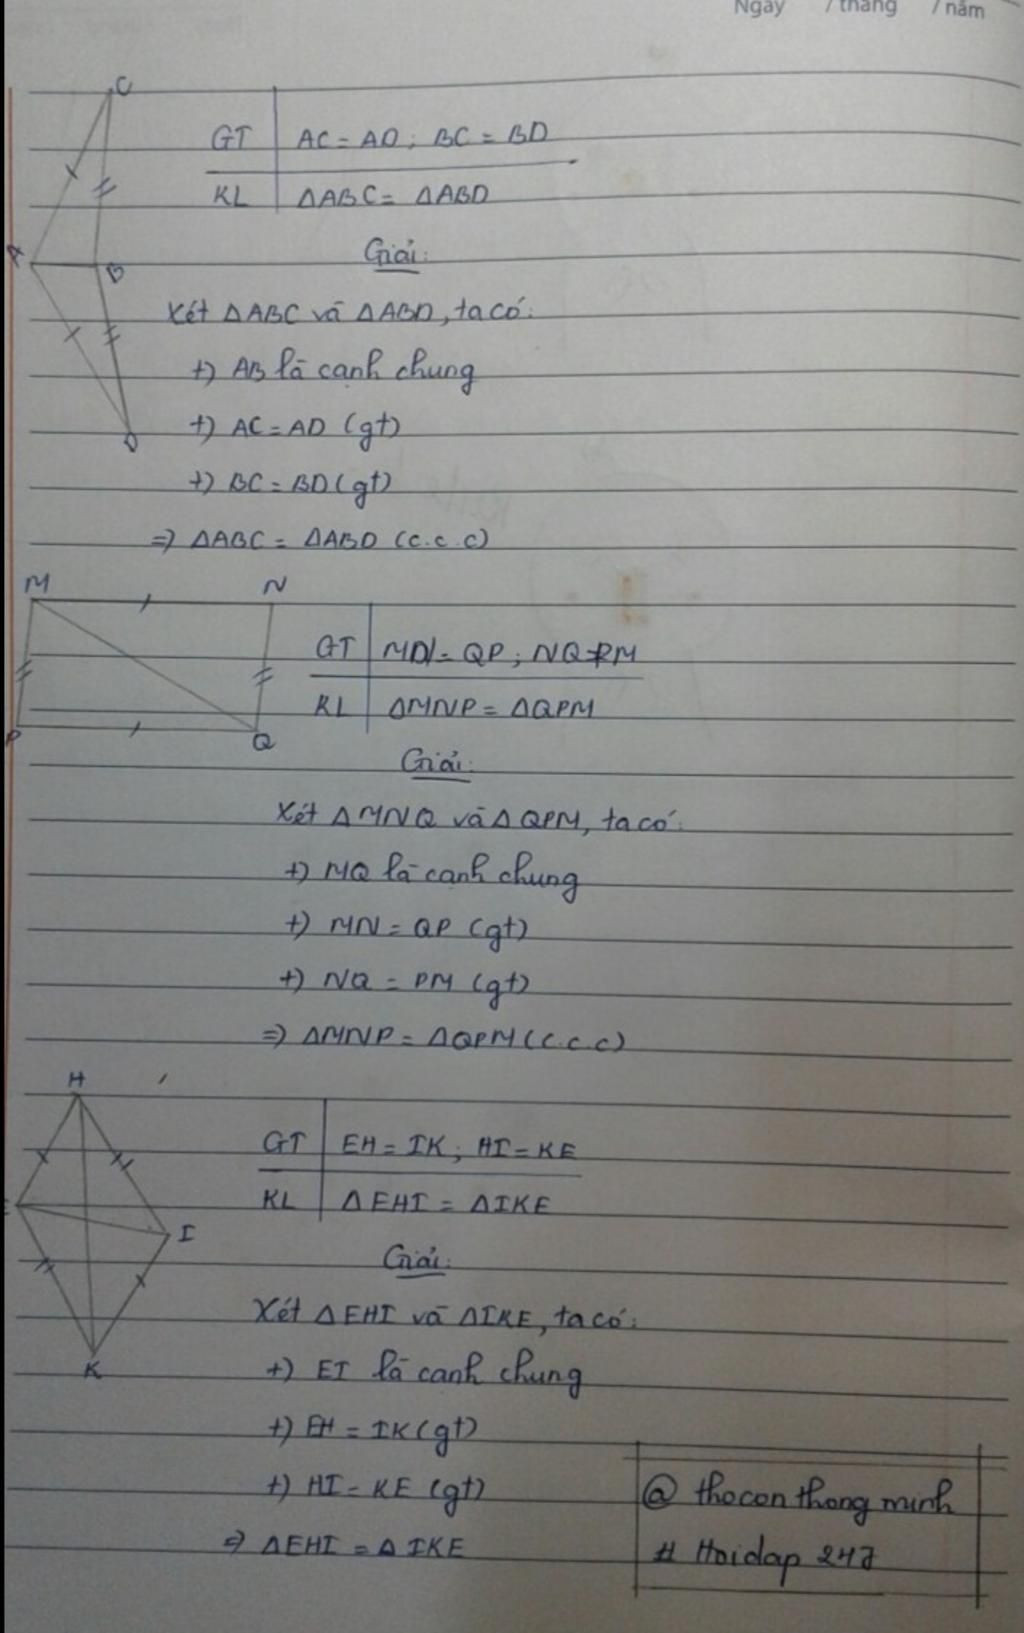 Ngày / tháng / năm
C
GT AC = AD ; BC = BD
KL ΔABC = ΔABD
A
B
D
Giải:
Xét ΔABC và ΔABD, ta có:
+) AB là cạnh chung
+) AC = AD (gt)
+) BC = BD (gt)
=) ΔABC = ΔABD (c.c.c)
M N
P Q
GT MN = QP ; NQ = PM
KL ΔMNP = ΔQPM
Giải:
Xét ΔMNQ và ΔQPM, ta có:
+) MQ là cạnh chung
+) MN = QP (gt)
+) NQ = PM (gt)
=) ΔMNP = ΔQPM (c.c.c)
H
E
I
K
GT EH = IK ; HI = KE
KL ΔEHI = ΔIKE
Giải:
Xét ΔEHI và ΔIKE, ta có:
+) EI là cạnh chung
+) EH = IK (gt)
+) HI = KE (gt)
=) ΔEHI = ΔIKE
@ thocon thong minh
# Hoidap 247